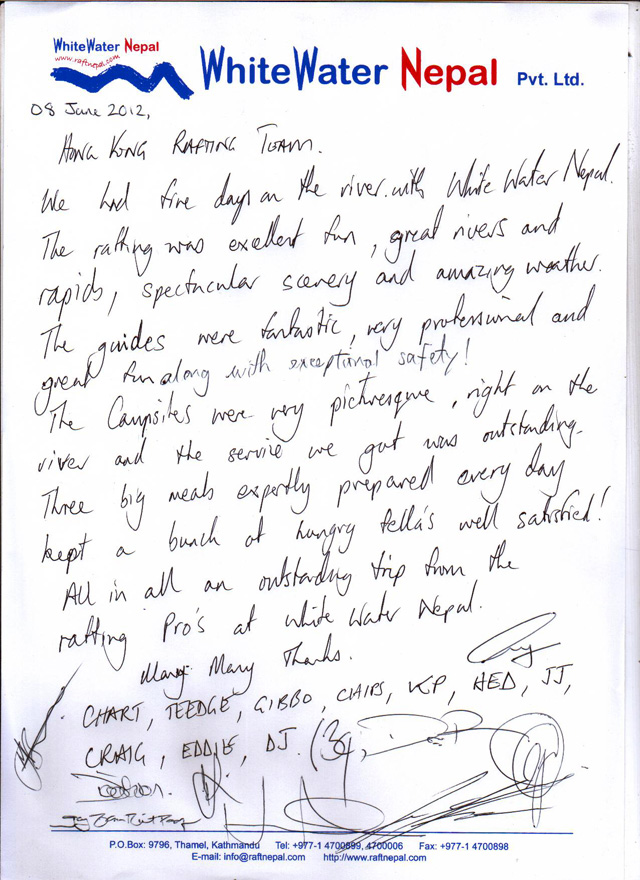 WhiteWater Nepal
www.raftnepal.com
WhiteWater Nepal Pvt. Ltd.
08 June 2012,
HONG KONG RAFTING TEAM.
We had five days on the river with White Water Nepal.
The rafting was excellent fun, great rivers and
rapids, spectacular scenery and amazing weather.
The guides were fantastic, very professional and
great fun along with exceptional safety!
The Campsites were very picturesque, right on the
river and the service we got was outstanding.
Three big meals expertly prepared every day
kept a bunch of hungry fella's well satisfied!
All in all an outstanding trip from the
rafting Pro's at White Water Nepal.
Many Many Thanks.
CHART, TEEDGE, GIBBO, CHIPS, KP, HED, JJ,
CRAIG, EDDIE, DJ.
P.O.Box: 9796, Thamel, Kathmandu Tel: +977-1 4700899, 4700006 Fax: +977-1 4700898
E-mail: info@raftnepal.com http://www.raftnepal.com